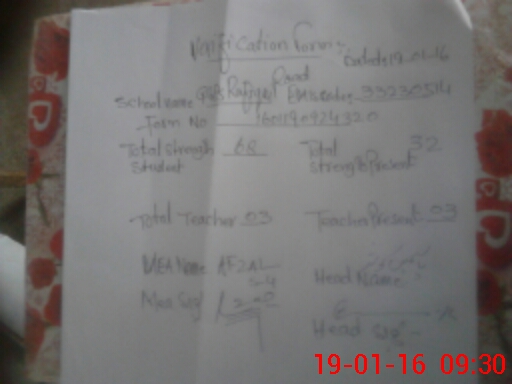 Verification Form
Dated: 19-01-16
School name GPS Rajgul Raod Emis code 33230514
Form No 160119092432.0
Total Strength 68 Total 32
Student Strength Present
Total Teacher 03 Teacher Present 03
MEA Name AFZAL Head Name
Mea Sig Head Sig
19-01-16 09:30